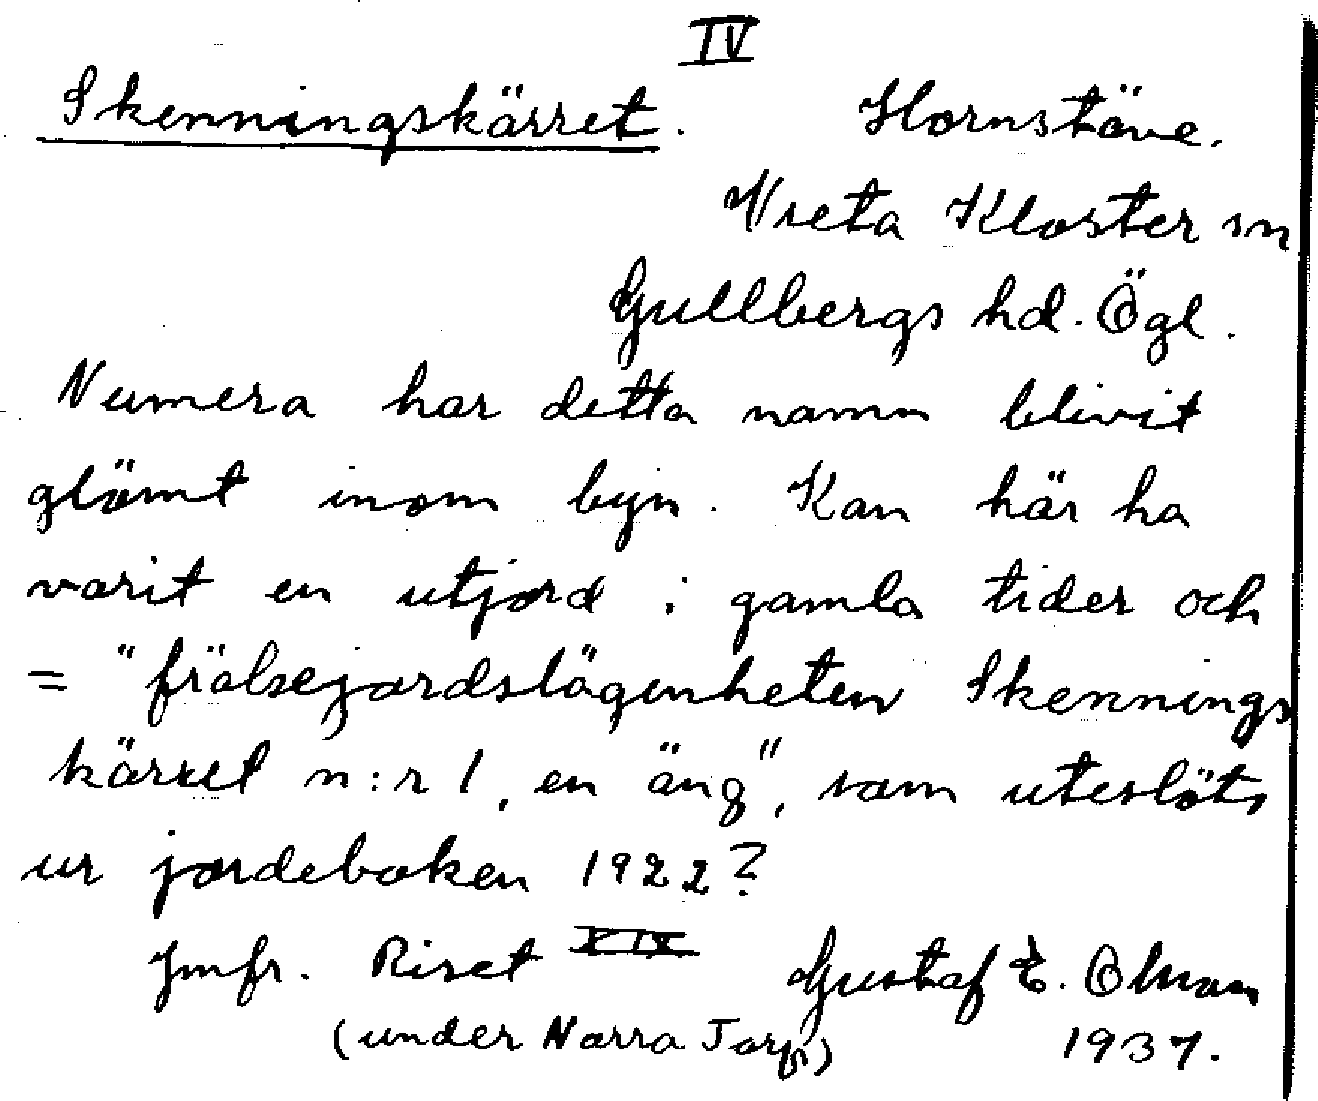 IV
Skenningskärret. Hornstäve.
Vreta Kloster sn
Gullbergs hd. Ögl.
Numera har detta namn blivit
glömt inom byn. Kan här ha
varit en utjord i gamla tider och
= "frälsejordslägenheten Skennings
kärret n:r 1, en äng", som uteslöts
ur jordeboken 1922?
Jmfr. Riset XIX Gustaf E. Olman
(under Norra Torp) 1937.